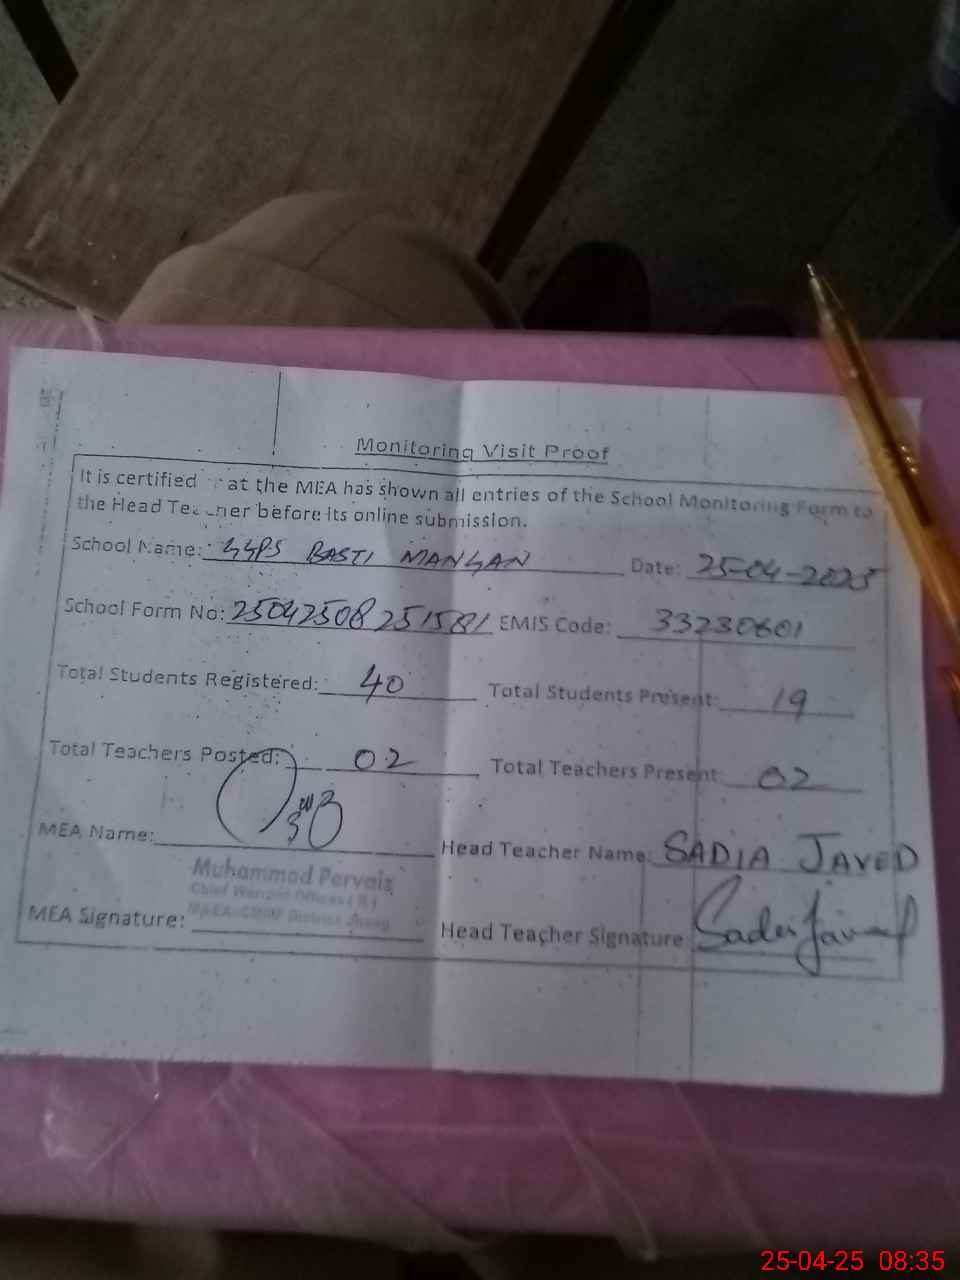 Monitoring Visit Proof
It is certified at the MEA has shown all entries of the School Monitoring Form to
the Head Teacher before its online submission.
School Name: GGPS BASTI MANGAN Date: 25-04-2025
School Form No: 25042508251581 EMIS Code: 33230601
Total Students Registered: 40 Total Students Present: 19
Total Teachers Posted: 02 Total Teachers Present: 02
MEA Name: Head Teacher Name: SADIA JAVED
Muhammad Pervaiz
MEA Signature: Head Teacher Signature: Sadia Javed
25-04-25 08:35